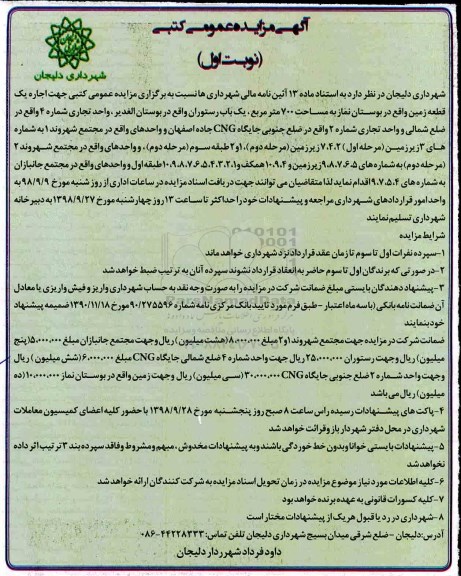 آگهی مزایده عمومی کتبی
(نوبت اول)
شهرداری دلیجان
شهرداری دلیجان در نظر دارد به استناد ماده ۱۳ آئین نامه مالی شهرداری ها نسبت به برگزاری مزایده عمومی کتبی جهت اجاره یک
قطعه زمین واقع در بوستان نماز به مساحت ۷۰۰ متر مربع ، یک باب رستوران واقع در بوستان الغدیر ، واحد تجاری شماره ۴ واقع در
ضلع شمالی و واحد تجاری شماره ۲ واقع در ضلع جنوبی جایگاه CNG جاده اصفهان و واحدهای واقع در مجتمع شهروند ۱ به شماره
های ۳ زیرزمین (مرحله اول) ۷،۴،۲ زیرزمین (مرحله دوم)،۱و۲ طبقه سوم (مرحله دوم) ، و واحدهای واقع در مجتمع شهروند ۲
(مرحله دوم) به شماره های ۹،۸،۷،۶،۵ زیرزمین و ۱۰،۹،۴ همکف و ۱۰،۹،۸،۷،۶،۵،۴،۳،۲،۱ طبقه اول و واحدهای واقع در مجتمع جانبازان
به شماره های ۹،۷،۵،۴ اقدام نماید لذا متقاضیان می توانند جهت دریافت اسناد مزایده در ساعات اداری از روز شنبه مورخ ۹۸/۹/۹ به
واحد امور قراردادهای شهرداری مراجعه و پیشنهادات خود را حداکثر تا ساعت ۱۳ روز چهارشنبه مورخ ۱۳۹۸/۹/۲۷ به دبیرخانه
شهرداری تسلیم نمایند
شرایط مزایده
۱-سپرده نفرات اول تا سوم تا زمان عقد قرارداد نزد شهرداری خواهد ماند
۲-در صورتی که برندگان اول تا سوم حاضر به انعقاد قرارداد نشوند سپرده آنان به ترتیب ضبط خواهد شد
۳-پیشنهاد دهندگان بایستی مبلغ ضمانت شرکت در مزایده را به صورت وجه نقد به حساب شهرداری واریز و فیش واریزی یا معادل
آن ضمانت نامه بانکی (با سه ماه اعتبار -طبق فرم مورد تایید بانک مرکزی نامه شماره ۹۰/۲۷۵۵۹۶ مورخ ۱۳۹۰/۱۱/۱۸ ضمیمه پیشنهاد
خود بنمایند
ضمانت شرکت در مزایده جهت مجتمع شهروند ۱و۲ مبلغ ۸،۰۰۰،۰۰۰ (هشت میلیون) ریال وجهت مجتمع جانبازان مبلغ ۵،۰۰۰،۰۰۰ (پنج
میلیون) ریال وجهت رستوران ۲۵،۰۰۰،۰۰۰ ریال جهت واحد شماره ۴ ضلع شمالی جایگاه CNG مبلغ ۶،۰۰۰،۰۰۰ (شش میلیون) ریال
و جهت واحد شماره ۲ ضلع جنوبی جایگاه CNG ۳۰،۰۰۰،۰۰۰ (سی میلیون) ریال و جهت زمین واقع در بوستان نماز ۱۰،۰۰۰،۰۰۰ (ده
میلیون) ریال می باشد
۴-پاکت های پیشنهادات رسیده راس ساعت ۸ صبح روز پنجشنبه مورخ ۱۳۹۸/۹/۲۸ با حضور کلیه اعضای کمیسیون معاملات
شهرداری در محل دفتر شهردار باز و قرائت خواهد شد
۵-پیشنهادات بایستی خوانا و بدون خط خوردگی باشند و به پیشنهادات مخدوش، مبهم و مشروط و فاقد سپرده بند ۳ ترتیب اثر داده
نخواهد شد
۶-کلیه اطلاعات مورد نیاز موضوع مزایده در زمان تحویل اسناد مزایده به شرکت کنندگان ارائه خواهد شد
۷-کلیه کسورات قانونی به عهده برنده خواهد بود
۸-شهرداری در رد یا قبول هر یک از پیشنهادات مختار است
آدرس:دلیجان -ضلع شرقی میدان بسیج شهرداری دلیجان تلفن تماس: ۴۴۲۲۸۳۳۳-۰۸۶
داود فرداد شهردار دلیجان